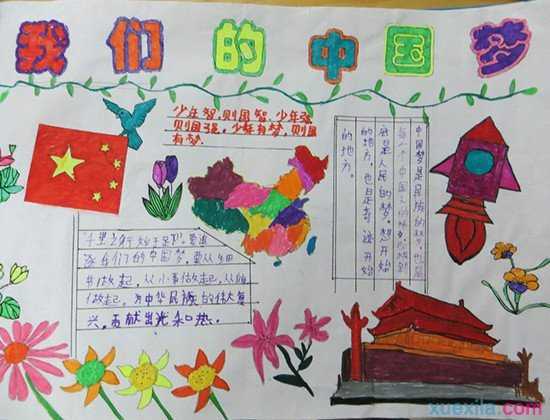 我们的中国梦
少年智,则国智,少年强
则国强,少年有梦,则国
有梦.
"千里之行始于足下",要追
逐我们的中国梦,要从细
做起,从小事做起,从
做起,为中华民族的伟大复
兴,贡献出光和热.
中国梦是民族的梦,也是
每一个中国人的梦
是人民的梦,想开始
的地方,也是奇迹开始
的地方。
xuexila.com